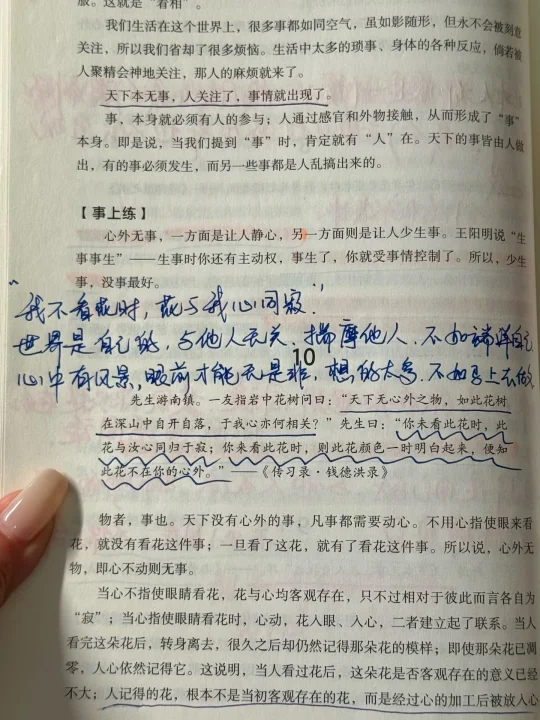 服。这就是“着相”。
我们生活在这个世界上，很多事都如同空气，虽如影随形，但永不会被刻意
关注，所以我们省却了很多烦恼。生活中太多的琐事、身体的各种反应，倘若被
人聚精会神地关注，那人的麻烦就来了。
天下本无事，人关注了，事情就出现了。
事，本身就必须有人的参与；人通过感官和外物接触，从而形成了“事”
本身。即是说，当我们提到“事”时，肯定就有“人”在。天下的事皆由人做
出，有的事必须发生，而另一些事都是人乱搞出来的。
【事上练】
心外无事，一方面是让人静心，另一方面则是让人少生事。王阳明说“生
事事生”——生事时你还有主动权，事生了，你就受事情控制了。所以，少生
事，没事最好。
“我不看花时，花与我心同寂”
世界是自己的，与他人无关、揣摩他人、不如端详自己
心中有风景，眼前才能无是非，想的太多，不如马上去做
10
先生游南镇。一友指岩中花树问曰：“天下无心外之物，如此花树
在深山中自开自落，于我心亦何相关？”先生曰：“你未看此花时，此
花与汝心同归于寂；你来看此花时，则此花颜色一时明白起来，便知
此花不在你的心外。”——《传习录·钱德洪录》
物者，事也。天下没有心外的事，凡事都需要动心。不用心指使眼来看
花，就没有看花这件事；一旦看了这花，就有了看花这件事。所以说，心外无
物，即心不动则无事。
当心不指使眼睛看花，花与心均客观存在，只不过相对于彼此而言各自为
“寂”；当心指使眼睛看花时，心动，花入眼、入人心，二者建立起了联系。当人
看完这朵花后，转身离去，很久之后却仍然记得那朵花的模样；即使那朵花已凋
零，人心依然记得它。这说明，当人看过花后，这朵花是否客观存在的意义已经
不大；人记得的花，根本不是当初客观存在的花，而是经过心的加工后被放入心